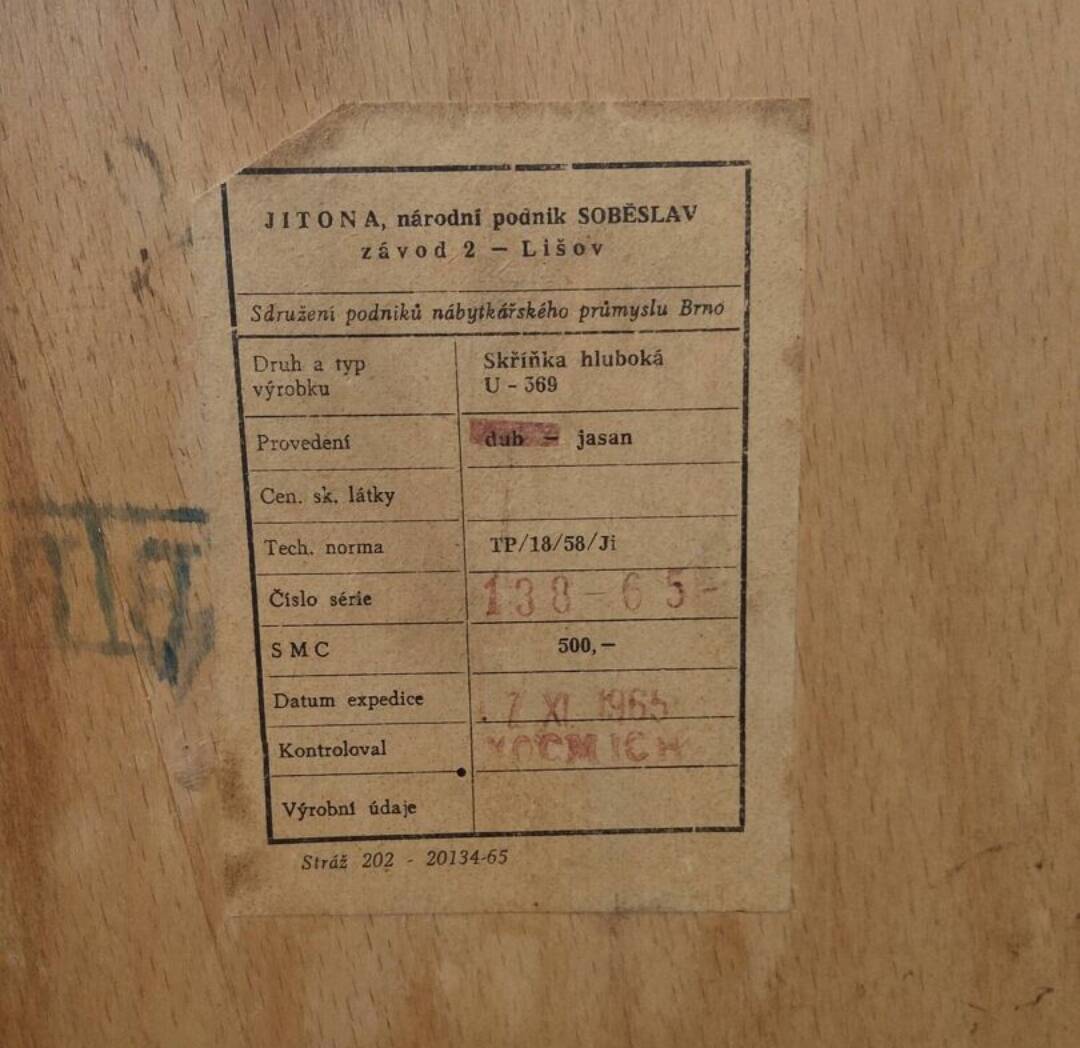 JITONA, národní podnik SOBĚSLAV
závod 2 — Lišov
Sdružení podniků nábytkářského průmyslu Brno
Druh a typ výrobku
Skříňka hluboká
U - 369
Provedení
dub — jasan
Cen. sk. látky
Tech. norma
TP/18/58/Ji
Číslo série
138-65-
SMC
500,—
Datum expedice
7 XI. 1965
Kontroloval
Výrobní údaje
Stráž 202 - 20134-65